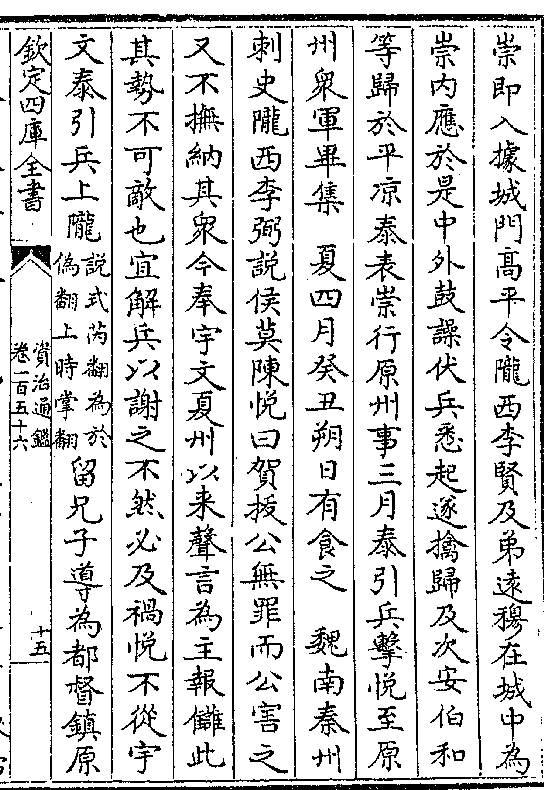 崇即入據城門高平令隴西李賢及弟遠穆在城中為
崇内應於是中外鼓譟伏兵悉起遂擒歸及次安伯和
等歸於平凉泰表崇行原州事三月泰引兵擊悦至原
州衆軍畢集　夏四月癸丑朔日有食之　魏南秦州
刺史隴西李弼説侯莫陳悦曰賀拔公無罪而公害之
又不撫納其衆今奉宇文夏州以来聲言為主報讎此
其勢不可敵也宜解兵以謝之不然必及禍悦不從宇
文泰引兵上隴説式芮翻為於偽翻上時掌翻留兄子導為都督鎮原
欽定四庫全書
資治通鑑
卷一百五十六
十五